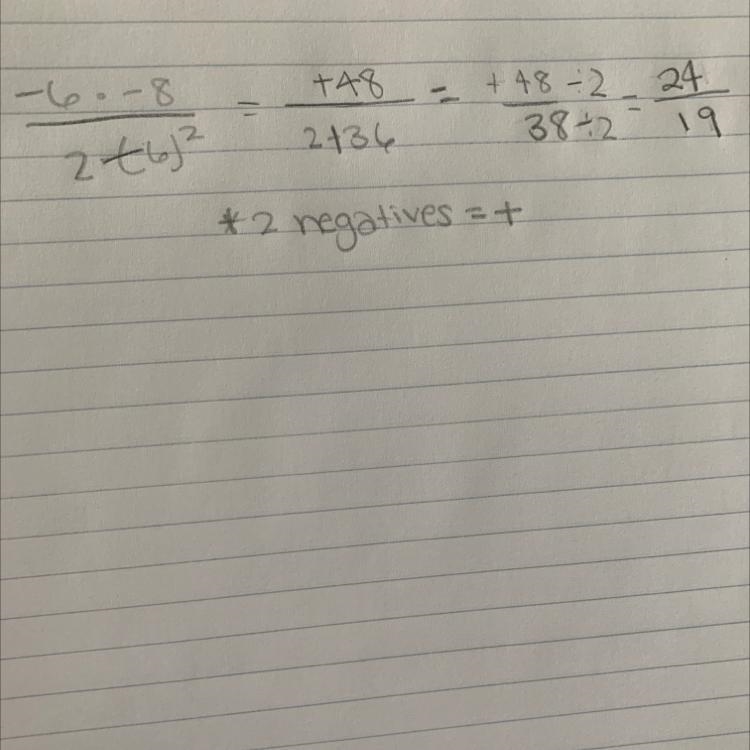 -6 · -8 / 2-(6)² = +48 / 2+36 = +48 ÷2 / 38 ÷2 = 24 / 19
* 2 negatives = +